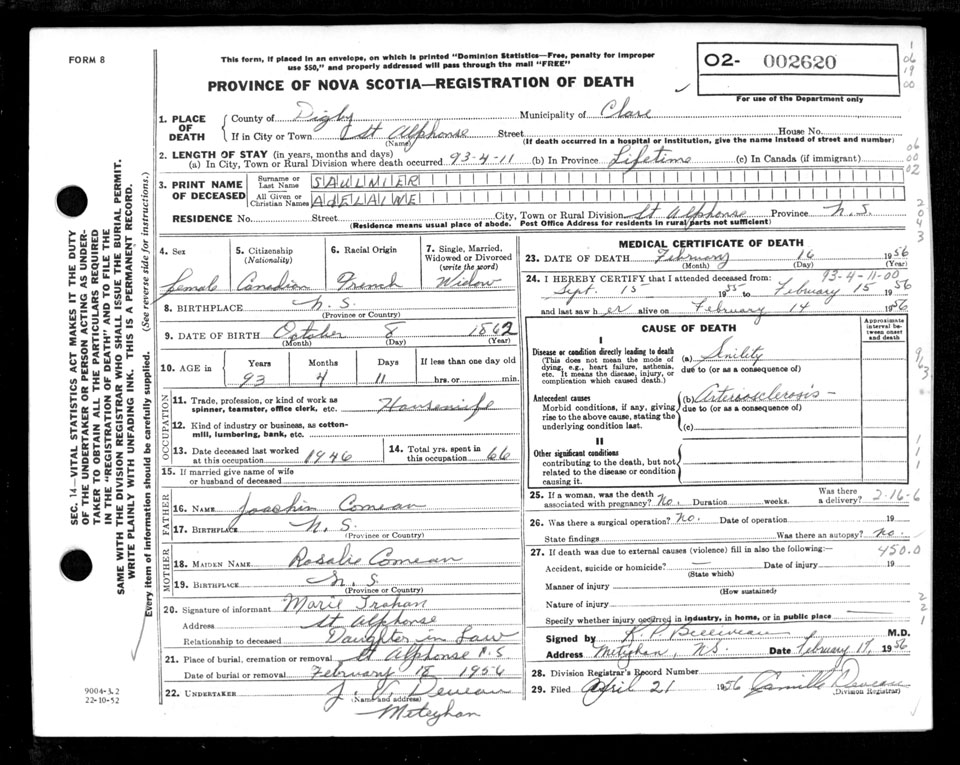 FORM 8
This form, if placed in an envelope, on which is printed "Dominion Statistics—Free, penalty for improper
use $50," and properly addressed will pass through the mail "FREE"
PROVINCE OF NOVA SCOTIA—REGISTRATION OF DEATH
O2- 002620
For use of the Department only
SEC. 14—VITAL STATISTICS ACT MAKES IT THE DUTY
OF THE UNDERTAKER OR PERSON ACTING AS UNDER-
TAKER TO OBTAIN ALL THE PARTICULARS REQUIRED
IN THE "REGISTRATION OF DEATH" AND TO FILE THE
SAME WITH THE DIVISION REGISTRAR WHO SHALL ISSUE THE BURIAL PERMIT.
WRITE PLAINLY WITH UNFADING INK. THIS IS A PERMANENT RECORD.
Every item of information should be carefully supplied. (See reverse side for instructions.)
1. PLACE OF DEATH
County of Digby Municipality of Clare
If in City or Town St Alphonse Street House No.
(Name) (If death occurred in a hospital or institution, give the name instead of street and number)
2. LENGTH OF STAY (in years, months and days)
(a) In City, Town or Rural Division where death occurred 93-4-11 (b) In Province Lifetime (c) In Canada (if immigrant)
3. PRINT NAME OF DECEASED
Surname or Last Name SAULNIER
All Given or Christian Names ADELAINE
RESIDENCE No. Street City, Town or Rural Division St Alphonse Province N.S.
(Residence means usual place of abode. Post Office Address for residents in rural parts not sufficient)
4. Sex female
5. Citizenship (Nationality) Canadian
6. Racial Origin French
7. Single, Married, Widowed or Divorced (write the word) Widow
8. BIRTHPLACE N.S.
(Province or Country)
9. DATE OF BIRTH October 8 1862
(Month) (Day) (Year)
10. AGE in Years Months Days If less than one day old
93 4 11 hrs. or min.
OCCUPATION
11. Trade, profession or kind of work as
spinner, teamster, office clerk, etc. Housewife
12. Kind of industry or business, as cotton-
mill, lumbering, bank, etc.
13. Date deceased last worked at this occupation 1946
14. Total yrs. spent in this occupation 66
15. If married give name of wife
or husband of deceased
FATHER
16. NAME Joachin Comeau
17. BIRTHPLACE N.S.
(Province or Country)
MOTHER
18. MAIDEN NAME Rosalie Comeau
19. BIRTHPLACE N.S.
(Province or Country)
20. Signature of informant Marie Trahan
Address St Alphonse
Relationship to deceased Daughter in Law
21. Place of burial, cremation or removal St Alphonse N.S
Date of burial or removal February 18 1956
22. UNDERTAKER J. V. Deveau
(Name and address)
Meteghan
9004-3.2
22-10-52
MEDICAL CERTIFICATE OF DEATH
23. DATE OF DEATH February 16 1956
(Month) (Day) (Year)
93-4-11-00
24. I HEREBY CERTIFY that I attended deceased from:
Sept. 15 1955 to February 15 1956
and last saw her alive on February 14 1956
CAUSE OF DEATH
Approximate interval between onset and death
I
Disease or condition directly leading to death (a) Snility
(This does not mean the mode of dying, e.g., heart failure, asthenia, etc. It means the disease, injury, or complication which caused death.)
due to (or as a consequence of)
Antecedent causes (b) Arteriosclerosis -
Morbid conditions, if any, giving rise to the above cause, stating the underlying condition last.
due to (or as a consequence of)
(c)
II
Other significant conditions
contributing to the death, but not related to the disease or condition causing it.
25. If a woman, was the death associated with pregnancy? No. Duration weeks. Was there a delivery?
2-16-6
26. Was there a surgical operation? No. Date of operation 19
State findings Was there an autopsy? No
27. If death was due to external causes (violence) fill in also the following:—
450.0
Accident, suicide or homicide? — Date of injury 19
(State which)
Manner of injury
(How sustained)
Nature of injury
Specify whether injury occurred in industry, in home, or in public place
Signed by R. P. Belliveau M.D.
Address Meteghan, NS. Date February 17, 1956
28. Division Registrar's Record Number
29. Filed April 21 1956 Camille Deveau
(Division Registrar)